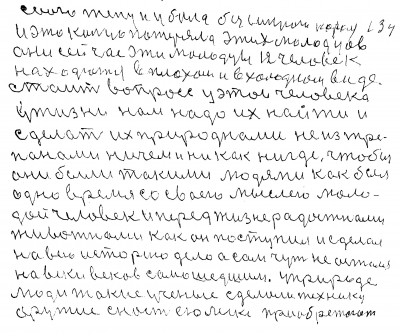 свого жену и была бы
и это кто потеряла этих молодцов
они сейчас эти молодцы 12 человек
находятся в плохом и в холодном виде.
стоит вопрос у этого человека
в жизни нам надо их найти и
сделать их природнами не изтре-
панами ничем и никак нигде, чтобы
они были такими людями как был
одно время со своею мыслею моло-
дой человек и перед жизнерадостнами
животнами как он поступил и сделал
на всю историю дело а сам чут не остался
на веки веков сашошедшим. у природе
люди такие ученые сделали технику
другие приобретают